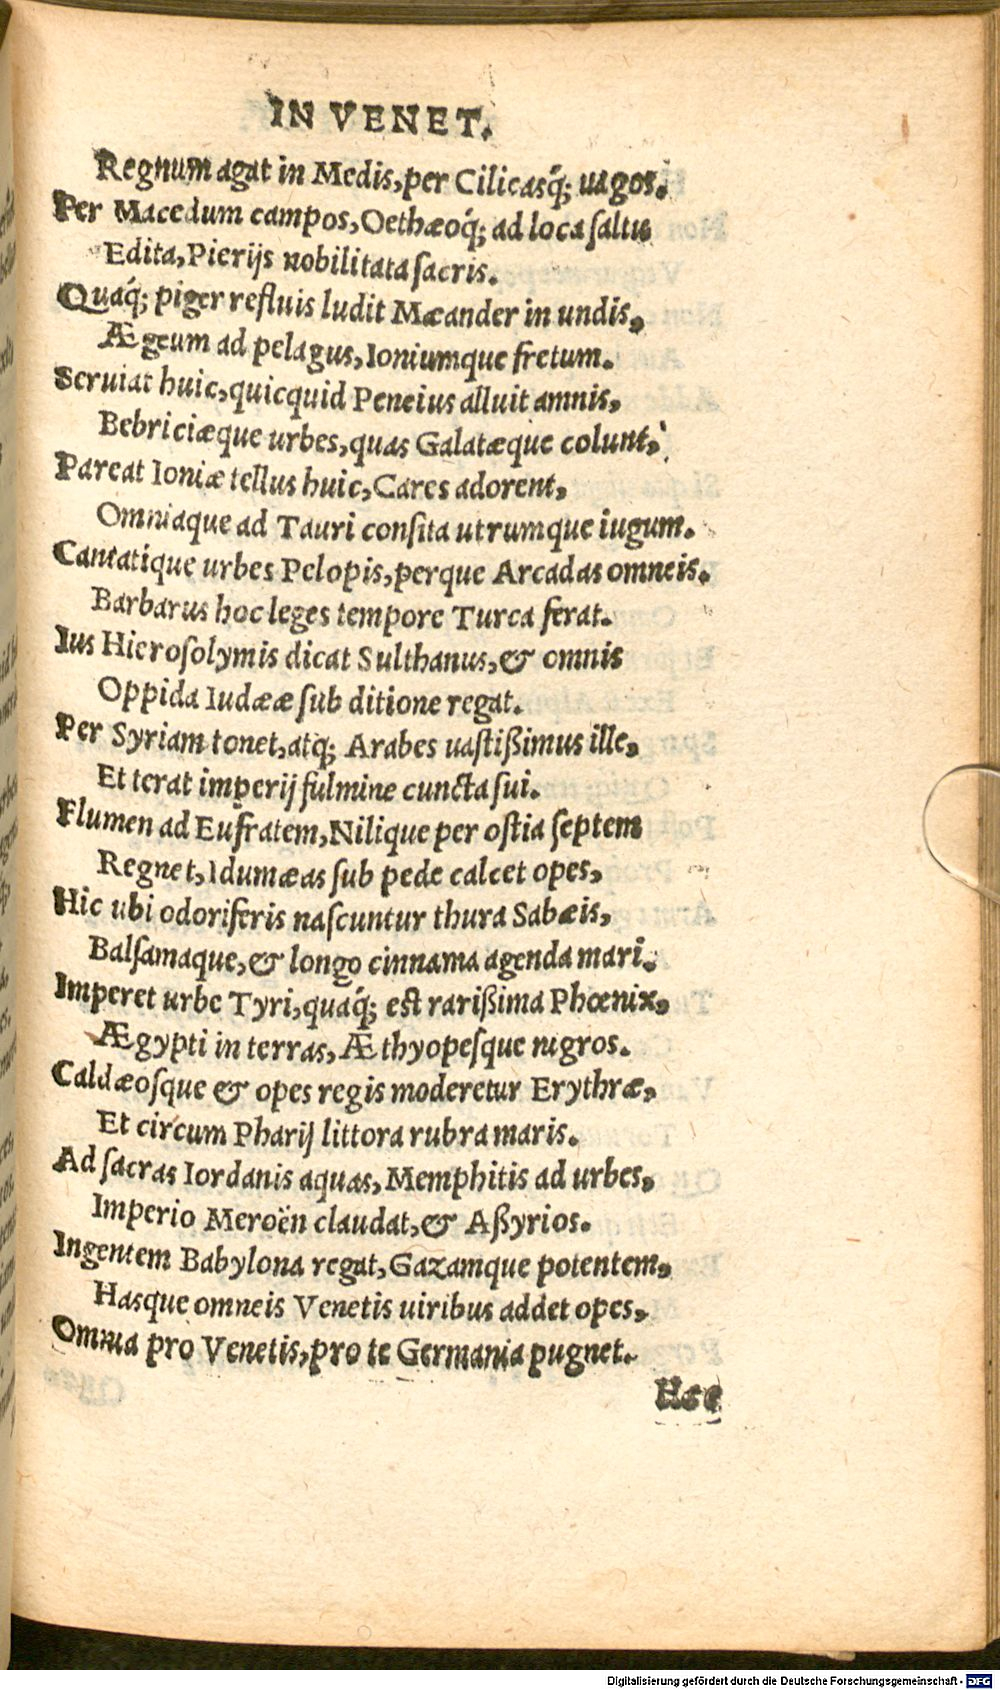 IN VENET.
Regnum agat in Medis, per Cilicasq́; uagos.
Per Macedum campos, Oethæoq́; ad loca ſaltu
Edita, Pierijs nobilitata ſacris.
Quaq́; piger refluis ludit Mæander in undis,
Ægeum ad pelagus, Ioniumque fretum.
Seruiat huic, quicquid Peneius alluit amnis,
Bebriciæque urbes, quas Galatæque colunt,
Pareat Ioniæ tellus huic, Cares adorent,
Omniaque ad Tauri conſita utrumque iugum.
Cantatique urbes Pelopis, perque Arcadas omneis.
Barbarus hoc leges tempore Turca ferat.
Ius Hieroſolymis dicat Sulthanus, & omnis
Oppida Iudææ ſub ditione regat.
Per Syriam tonet, atq; Arabes uaſtißimus ille,
Et terat imperij fulmine cuncta ſui.
Flumen ad Eufratem, Nilique per oſtia ſeptem
Regnet, Idumæas ſub pede calcet opes,
Hic ubi odoriferis naſcuntur thura Sabæis,
Balſamaque, & longo cinnama agenda mari.
Imperet urbe Tyri, quaq́; eſt rarißima Phœnix,
Ægypti in terras, Æthyopeſque nigros.
Caldæoſque & opes regis moderetur Erythræ,
Et circum Pharij littora rubra maris.
Ad ſacras Iordanis aquas, Memphitis ad urbes,
Imperio Meroën claudat, & Aßyrios.
Ingentem Babylona regat, Gazamque potentem,
Hasque omneis Venetis uiribus addet opes,
Omnia pro Venetis, pro te Germania pugnet.
Hæc
Digitalisierung gefördert durch die Deutsche Forschungsgemeinschaft - DFG